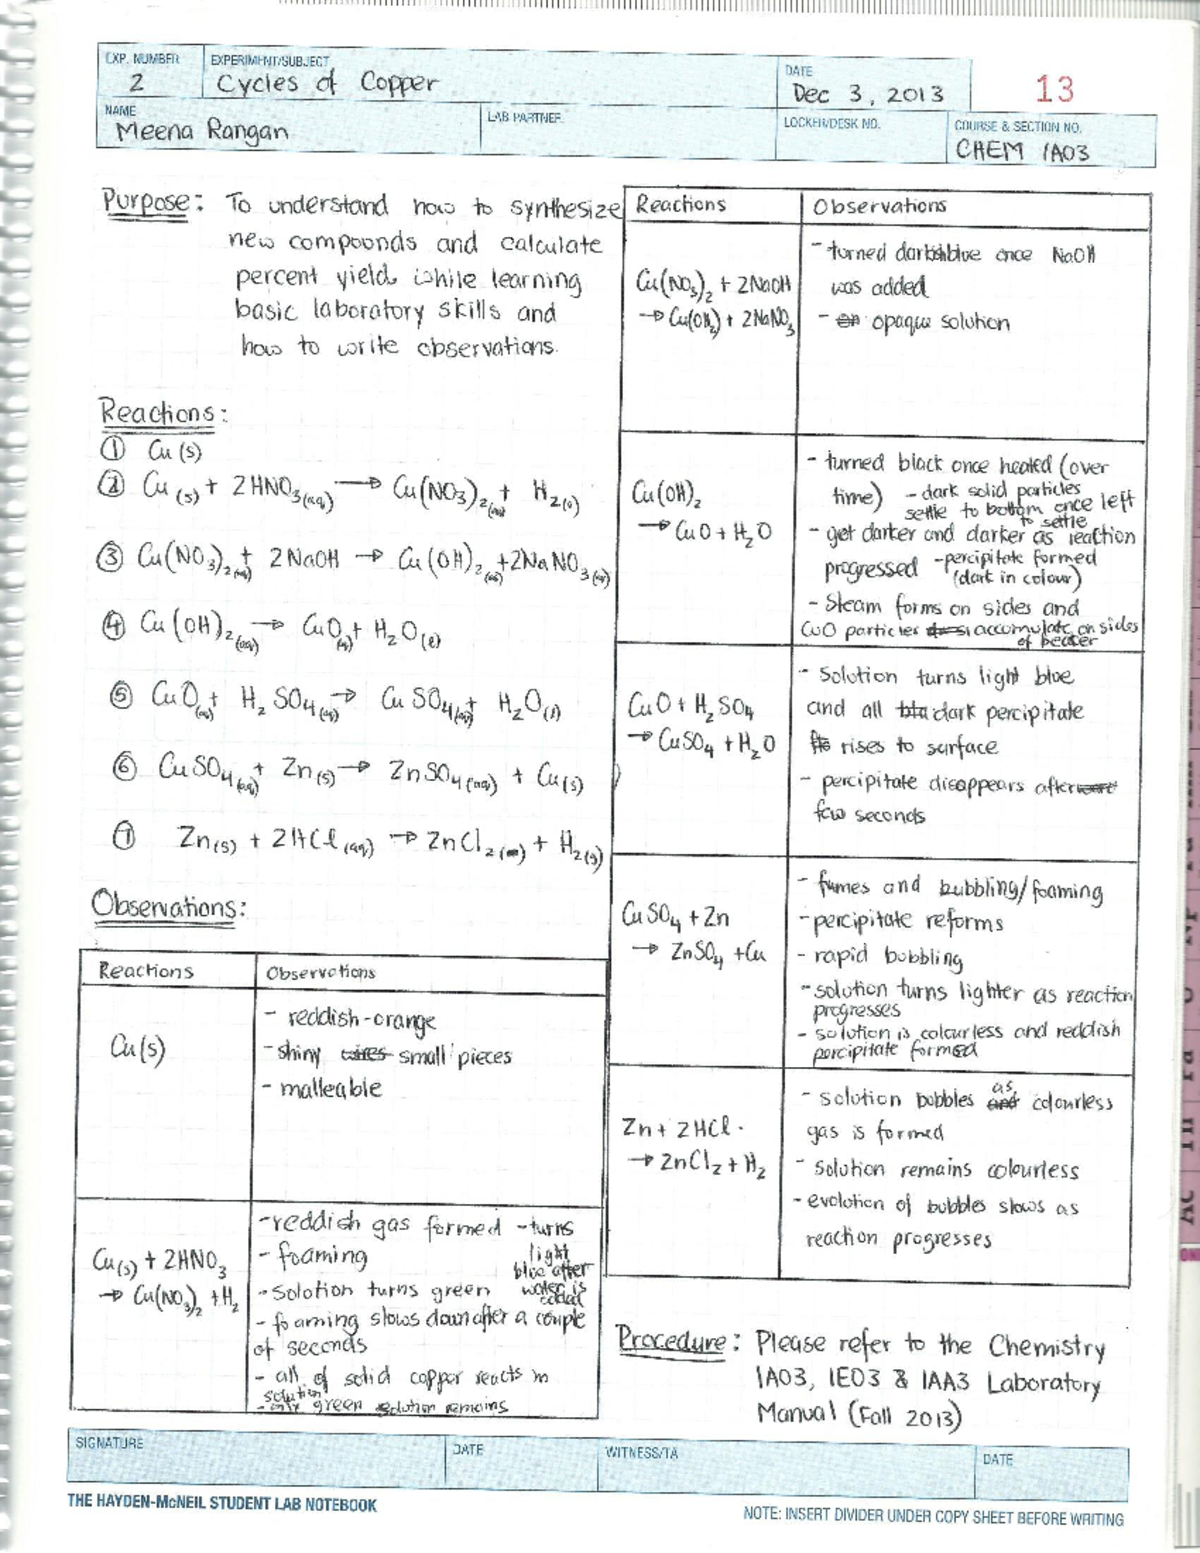 EXP. NUMBER
2
EXPERIMENT/SUBJECT
Cycles of Copper
DATE
Dec 3, 2013
13
NAME
Meena Rangan
LAB PARTNER
LOCKER/DESK NO.
COURSE & SECTION NO.
CHEM 1A03
Purpose: To understand how to synthesize
new compounds and calculate
percent yield while learning
basic laboratory skills and
how to write observations.
Reactions:
① Cu (s)
② Cu (s) + 2HNO3(aq) → Cu(NO3)2(aq) + H2(g)
③ Cu(NO3)2(aq) + 2NaOH → Cu(OH)2(aq) + 2NaNO3(aq)
④ Cu(OH)2(aq) → CuO(s) + H2O(l)
⑤ CuO(aq) + H2SO4(aq) → CuSO4(aq) + H2O(l)
⑥ CuSO4(aq) + Zn(s) → ZnSO4(aq) + Cu(s)
⑦ Zn(s) + 2HCl(aq) → ZnCl2(aq) + H2(g)
Observations:
Reactions
Observations
Cu(s)
- reddish-orange
- shiny wires small pieces
- malleable
Cu(s) + 2HNO3
→ Cu(NO3)2 + H2
- reddish gas formed
- foaming
- solution turns green
- turns
light
blue after
water is
added
- foaming slows down after a couple
of seconds
- all of solid copper reacts in
solution
- only green solution remains
Reactions
Observations
Cu(NO3)2 + 2NaOH
→ Cu(OH2) + 2NaNO3
- turned darkish blue once NaOH
was added
- opaque solution
Cu(OH)2
→ CuO + H2O
- turned black once heated (over
time)
- dark solid particles
settle to bottom once left
to settle
- get darker and darker as reaction
progressed
- percipitate formed
(dark in colour)
- Steam forms on sides and
CuO particles accumulate on sides
of beaker
CuO + H2SO4
→ CuSO4 + H2O
- solution turns light blue
and all dark percipitate
rises to surface
- percipitate disappears after
few seconds
CuSO4 + Zn
→ ZnSO4 + Cu
- fumes and bubbling/foaming
- percipitate reforms
- rapid bubbling
- solution turns lighter as reaction
progresses
- solution is colourless and reddish
percipitate formed
Zn + 2HCl
→ ZnCl2 + H2
- solution bubbles and as colourless
gas is formed
- solution remains colourless
- evolution of bubbles slows as
reaction progresses
Procedure: Please refer to the Chemistry
1A03, 1E03 & 1AA3 Laboratory
Manual (Fall 2013)
SIGNATURE
DATE
WITNESS/TA
DATE
THE HAYDEN-McNEIL STUDENT LAB NOTEBOOK
NOTE: INSERT DIVIDER UNDER COPY SHEET BEFORE WRITING